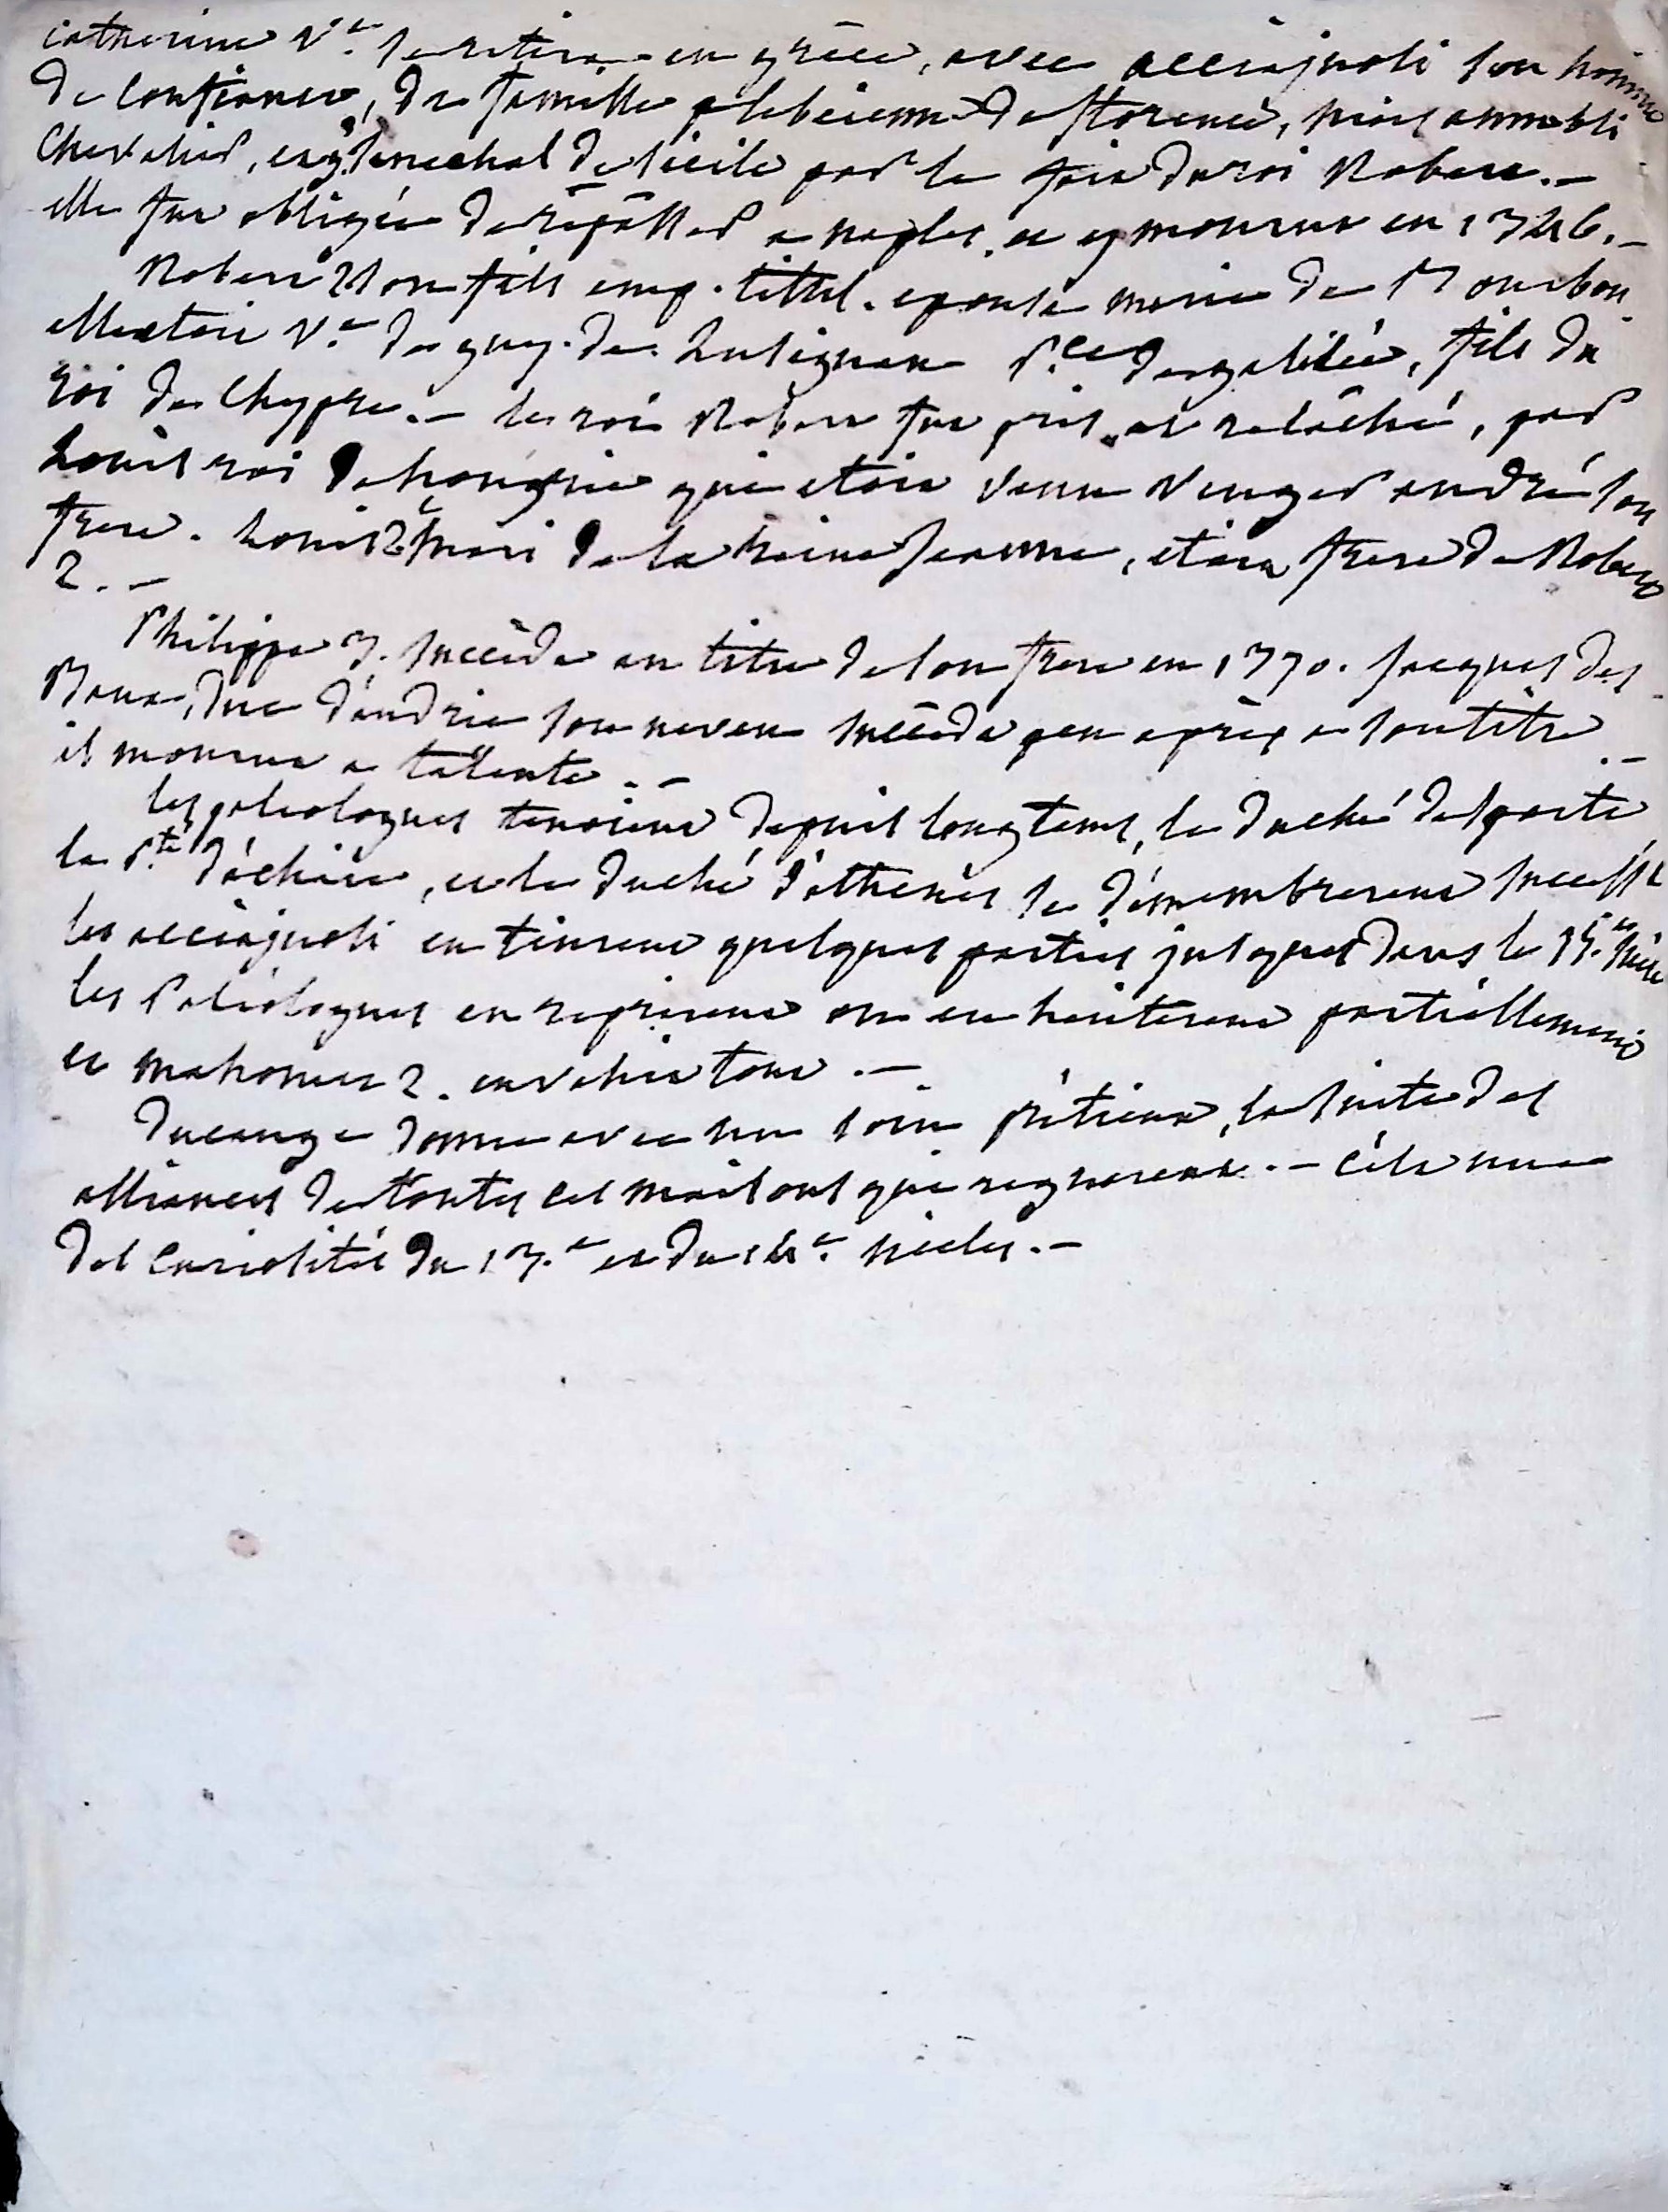 Catherine V.e se retira en grèce, avec acciajuoli son homme
de confiance, de famille plebeienne de florence, mais annobli
Chevalier, et g.d senechal de sicile par le fait du roi Robert. —
elle fut obligée de repasser a naples, et y mourut en 1346. —
Robert 2 son fils emp. titul. epousa marie de Bourbon
elle etoit V.e de guy. de Lusignan P.ce de galilée, fils du
roi de Chypre. — le roi Robert fut pris, et relâché, par
Louis roi de hongrie qui etoit venu venger andré son
frere. Louis 2.e mari de la Reine Jeanne, etoit frere de Robert
2. —
Philippe 3. succéda au titre de son frere en 1370. Jacques des
Baux, Duc d'andrie son neveu succéda peu après a son titre. —
il mourut a tarente. —
les paleologues tenoient depuis longtems, le duché de sparte
la P.té d'achaïe, et le duché d'athenes se démembrerent success.t
les acciajuoli en tinrent quelques parties jusques dans le 15.e siècle
les Paleologues en reprirent ou en heriterent partiellement
et mahomet 2. envahit tout. —
Ducange donne avec un soin prétieux, la suite des
alliances de toutes ces maisons qui regnerent. — C'est une
des Curiosités du 13.e et du 14.e siecles. —